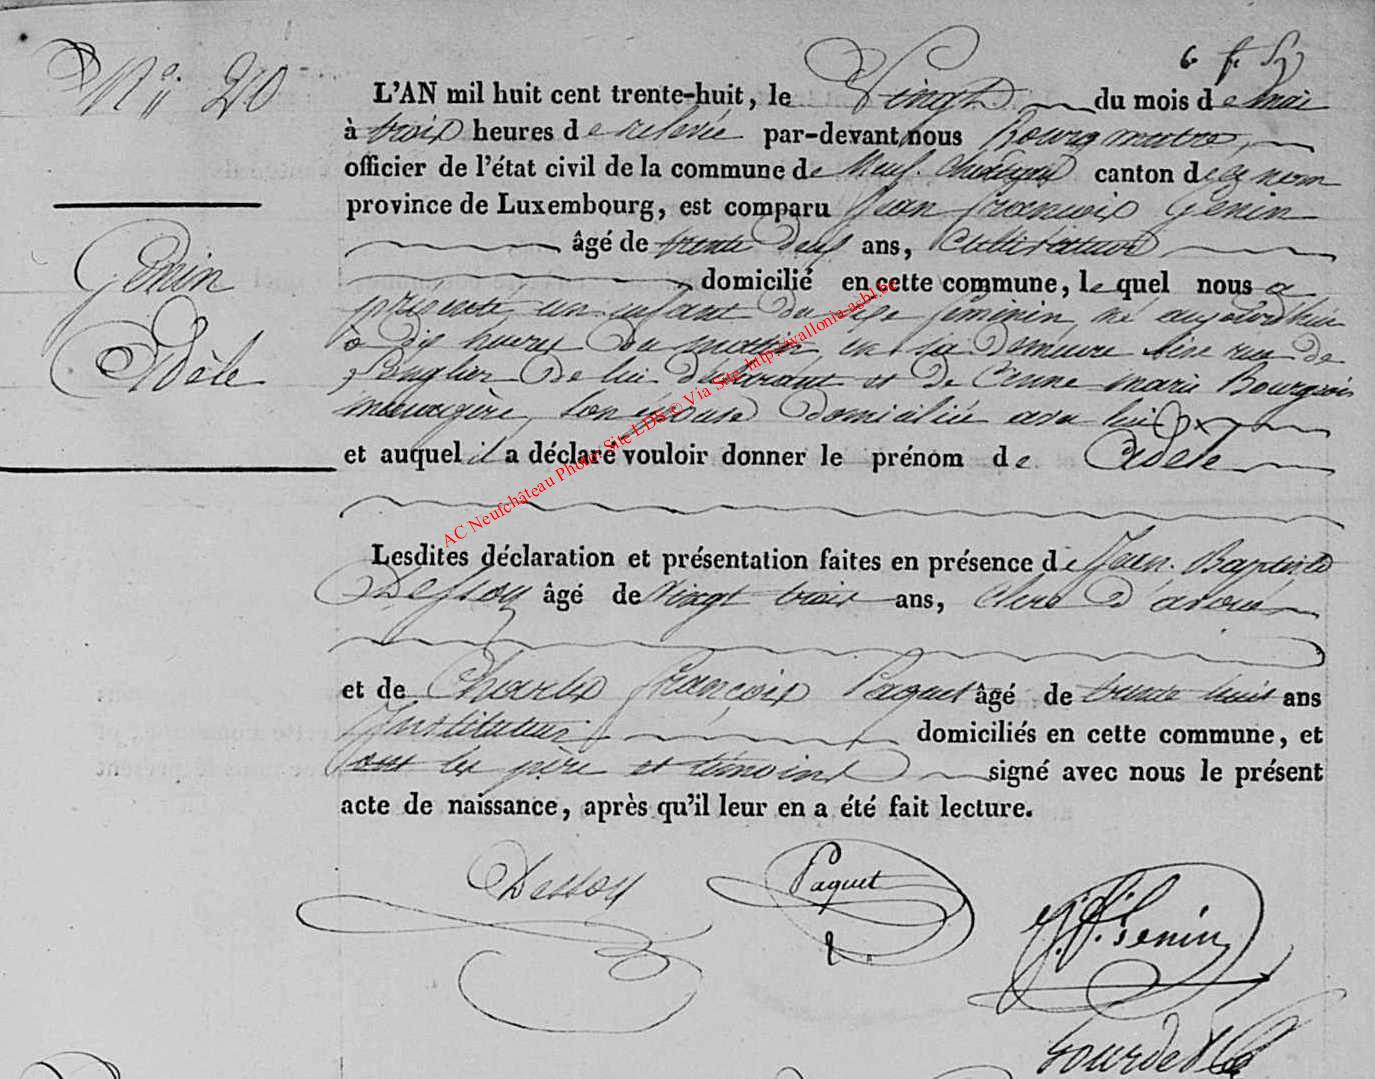 N° 20
L'AN mil huit cent trente-huit, le Vingt du mois de mai
à trois heures de relevée par-devant nous Bourgmestre
officier de l'état civil de la commune de Neufchateau canton de ce nom
province de Luxembourg, est comparu Jean François Genin
âgé de trente ans, Cultivateur
domicilié en cette commune, le quel nous a
présenté un enfant du sexe féminin né aujourd'hui
à dix heures du matin en sa demeure rue de
de lui déclarant et de Marie Bourgeois
ménagère, son épouse domiciliée avec lui
et auquel il a déclaré vouloir donner le prénom de Adèle
Genin
Adèle
Lesdites déclaration et présentation faites en présence de Jean Baptiste
Dessoy âgé de Vingt trois ans, clerc d'avoué
et de Charles François Paquet âgé de trente huit ans
Instituteur domiciliés en cette commune, et
ont les père et témoins signé avec nous le présent
acte de naissance, après qu'il leur en a été fait lecture.
Dessoy
Paquet
J. F. Genin
AC Neufchâteau Photo: Site LDS © Via Site http://wallonia-asbl.be